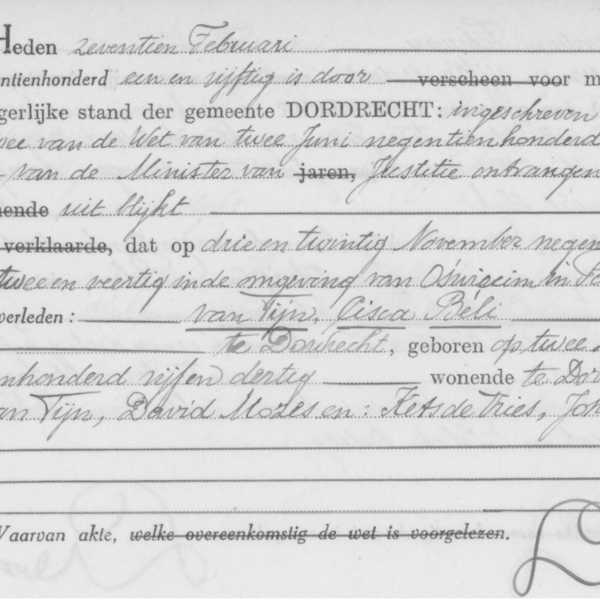 Heden zeventien Februari
entienhonderd een en vijftig is door verscheen voor m
gerlijke stand der gemeente DORDRECHT: ingeschreven
wee van de Wet van twee Juni negentienhonderd
van de Minister van jaren, Justitie ontvangen
ende uit blijkt
verklaarde, dat op drie en twintig November negen
twee en veertig in de omgeving van Oświęcim in Po
overleden: van Tijn, Cisca Béli
te Dordrecht, geboren op twee
nhonderd vijf en dertig wonende te Dor
an Tijn, David Mozes en: Kets de Vries, Joh
Waarvan akte, welke overeenkomstig de wet is voorgelezen.